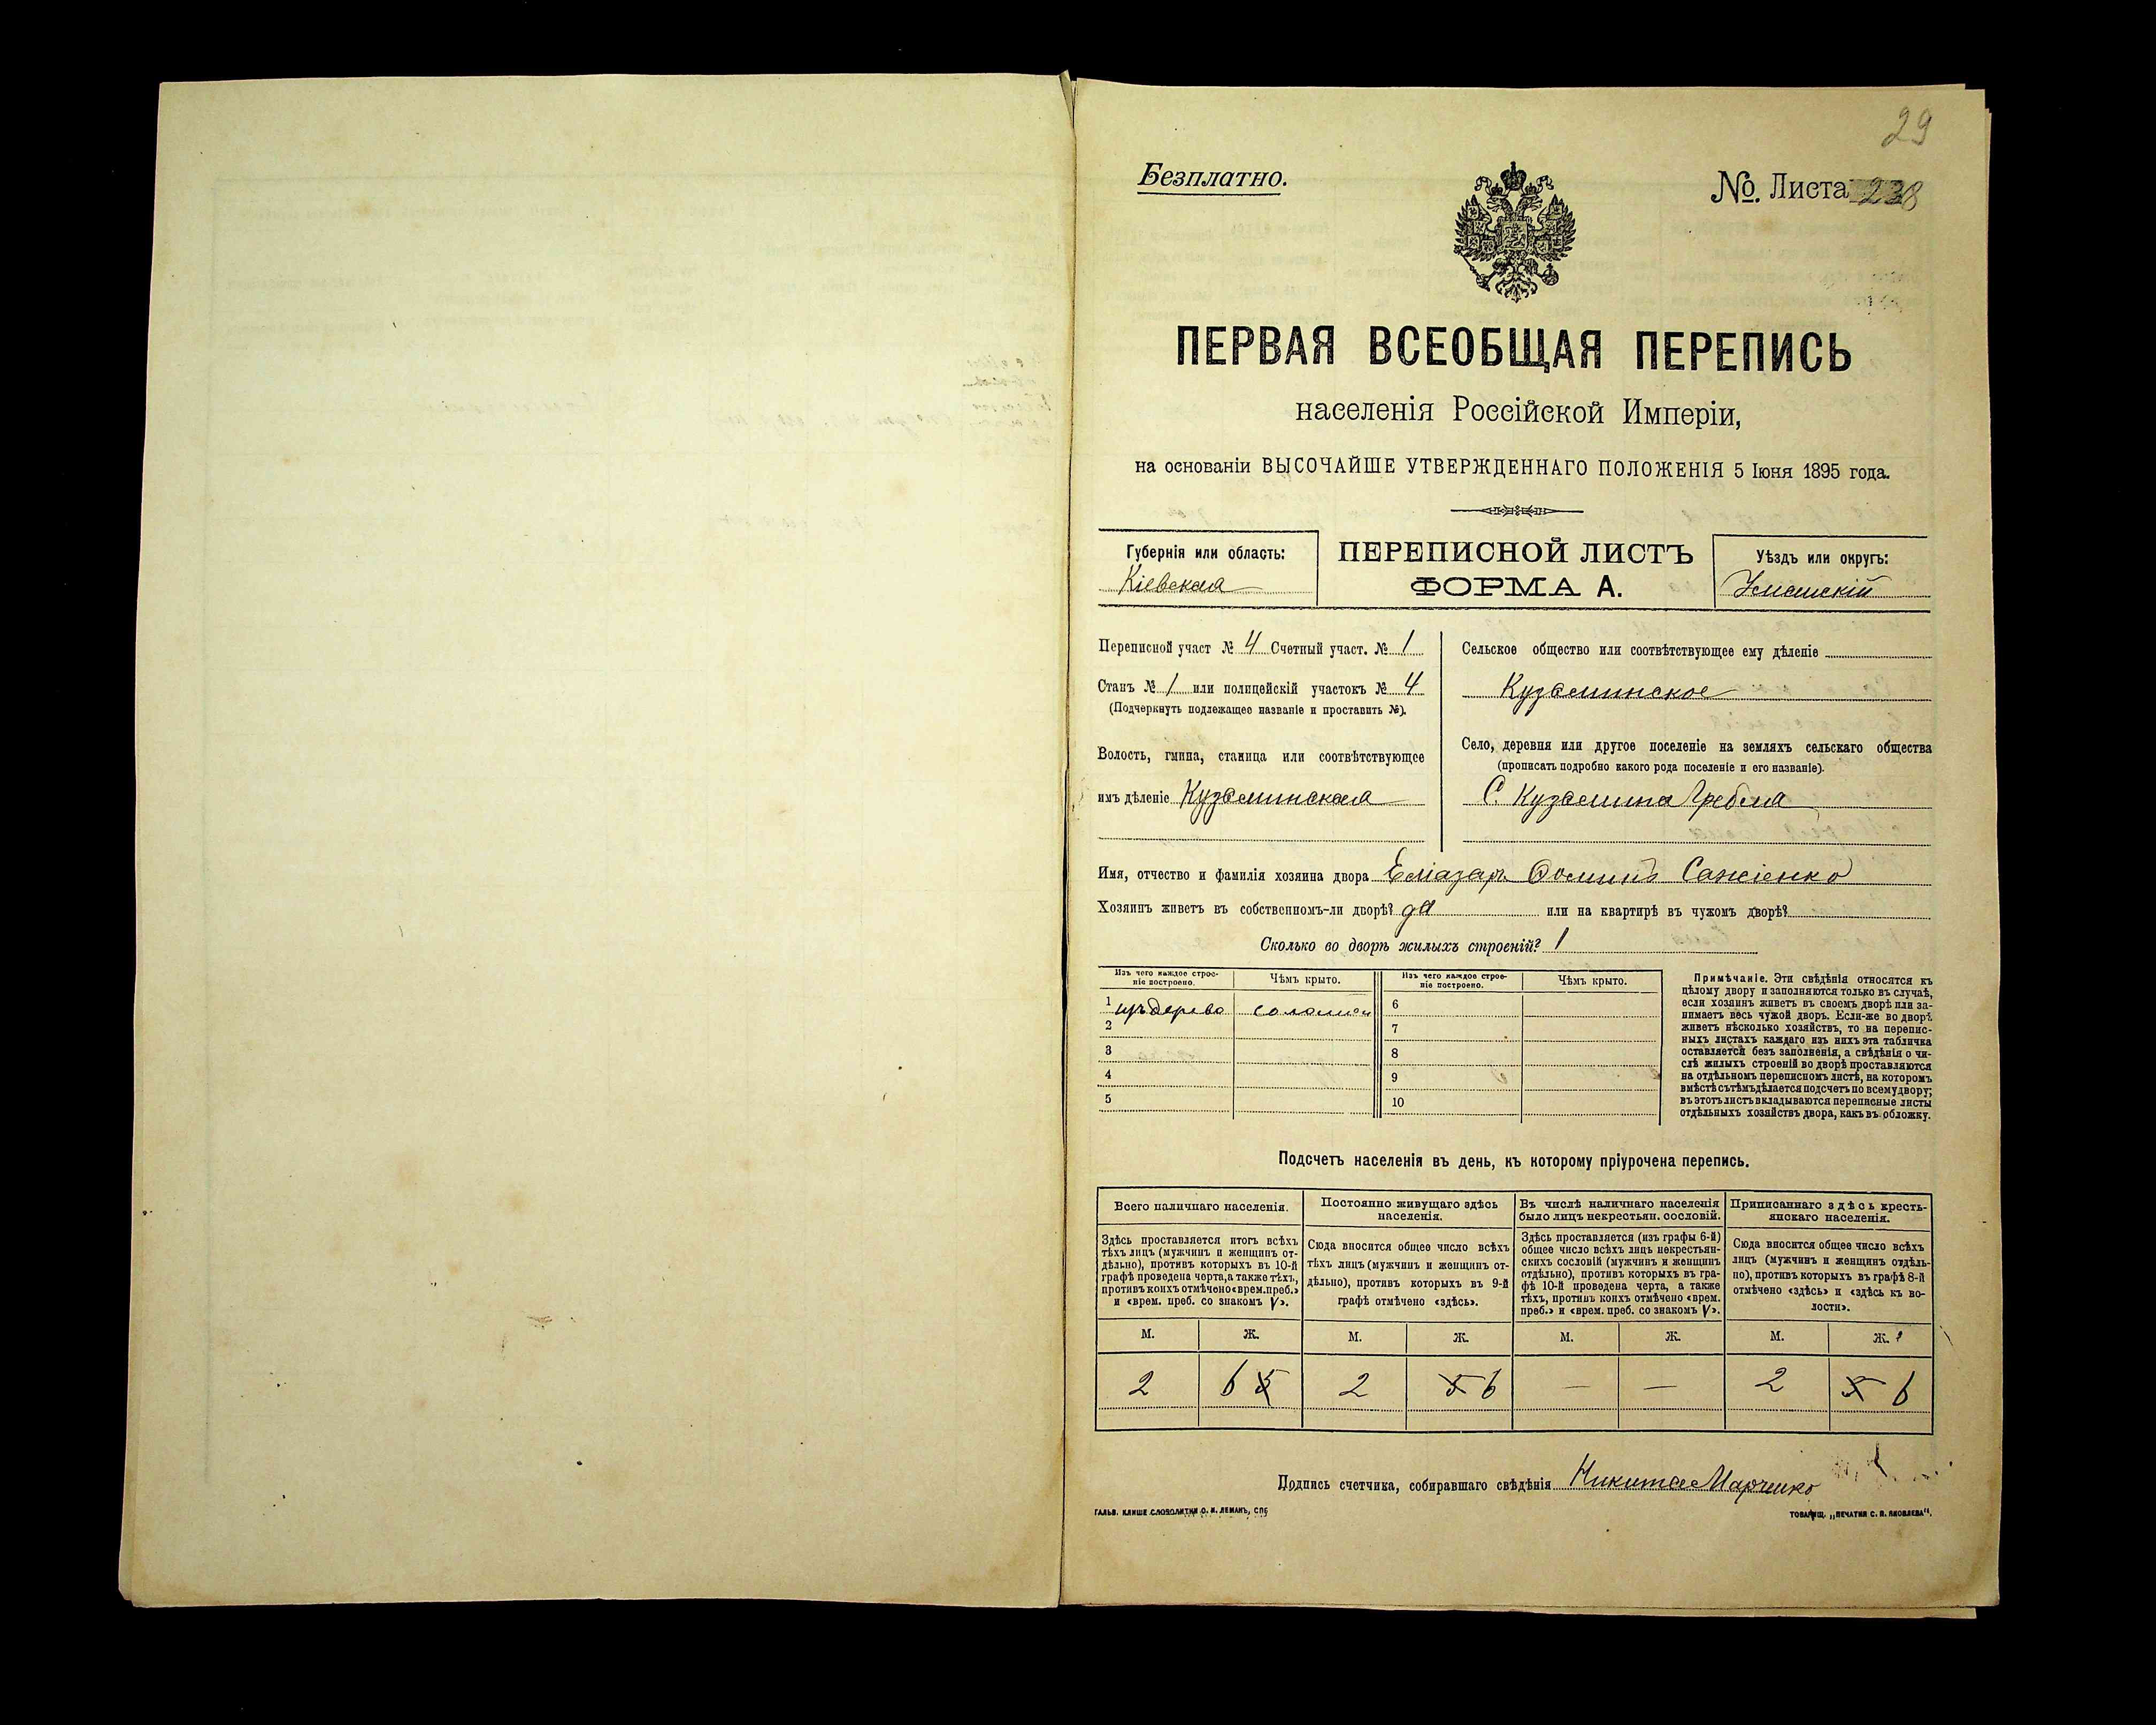 29
Безплатно.
№. Листа 238
ПЕРВАЯ ВСЕОБЩАЯ ПЕРЕПИСЬ
населенія Россійской Имперіи,
на основаніи ВЫСОЧАЙШЕ УТВЕРЖДЕННАГО ПОЛОЖЕНІЯ 5 Іюня 1895 года.
Губернія или область:
Кіевская
ПЕРЕПИСНОЙ ЛИСТЪ
ФОРМА А.
Уѣздъ или округъ:
Уманскій
Переписной участ № 4 Счетный участ. № 1
Станъ № 1 или полицейскій участокъ № 4
(Подчеркнуть подлежащее названіе и проставить №).
Волость, гмина, станица или соотвѣтствующее
имъ дѣленіе Кузьминская
Сельское общество или соотвѣтствующее ему дѣленіе
Кузьминское
Село, деревня или другое поселеніе на земляхъ сельскаго общества
(прописать подробно какого рода поселеніе и его названіе).
С. Кузьмина Гребля
Имя, отчество и фамилія хозяина двора Еліазаръ Ѳоминъ
Хозяинъ живетъ въ собственномъ-ли дворѣ? да или на квартирѣ въ чужомъ дворѣ?
Сколько во дворѣ жилыхъ строеній? 1
Изъ чего каждое строе-
ніе построено.
Чѣмъ крыто.
1 изъ дерева соломой
2
3
4
5
Изъ чего каждое строе-
ніе построено.
Чѣмъ крыто.
6
7
8
9
10
Примѣчаніе. Эти свѣдѣнія относятся къ
цѣлому двору и заполняются только въ случаѣ,
если хозяинъ живетъ въ своемъ дворѣ или за-
нимаетъ весь чужой дворъ. Если-же во дворѣ
живетъ нѣсколько хозяйствъ, то на перепис-
ныхъ листахъ каждаго изъ нихъ эта табличка
оставляется безъ заполненія, а свѣдѣнія о чи-
слѣ жилыхъ строеній во дворѣ проставляются
на отдѣльномъ переписномъ листѣ, на которомъ
вмѣстѣ съ тѣмъ дѣлается подсчетъ по всему двору;
въ этотъ листъ вкладываются переписные листы
отдѣльныхъ хозяйствъ двора, какъ въ обложку.
Подсчетъ населенія въ день, къ которому пріурочена перепись.
Всего наличнаго населенія.
Здѣсь проставляется итогъ всѣхъ
тѣхъ лицъ (мужчинъ и женщинъ от-
дѣльно), противъ которыхъ въ 10-й
графѣ проведена черта, а также тѣхъ,
противъ коихъ отмѣчено «врем. преб.»
и «врем. преб. со знакомъ V».
Постоянно живущаго здѣсь
населенія.
Сюда вносится общее число всѣхъ
тѣхъ лицъ (мужчинъ и женщинъ от-
дѣльно), противъ которыхъ въ 9-й
графѣ отмѣчено «здѣсь».
Въ числѣ наличнаго населенія
было лицъ некрестьян. сословій.
Здѣсь проставляется (изъ графы 6-й)
общее число всѣхъ лицъ некрестьян-
скихъ сословій (мужчинъ и женщинъ
отдѣльно), противъ которыхъ въ гра-
фѣ 10-й проведена черта, а также
тѣхъ, противъ коихъ отмѣчено «врем.
преб.» и «врем. преб. со знакомъ V».
Приписаннаго здѣсь кресть-
янскаго населенія.
Сюда вносится общее число всѣхъ
лицъ (мужчинъ и женщинъ отдѣль-
но), противъ которыхъ въ графѣ 8-й
отмѣчено «здѣсь» и «здѣсь къ во-
лости».
М. Ж. М. Ж. М. Ж. М. Ж.
2 6 5 2 5 6 — — 2 5 6
Подпись счетчика, собиравшаго свѣдѣнія Никита Марченко
ГАЛЬВ. КЛИШЕ СЛОВОЛИТНИ О. И. ЛЕМАНЪ, СПБ
ТОВАРИЩ. „ПЕЧАТНЯ С. П. ЯКОВЛЕВА“.